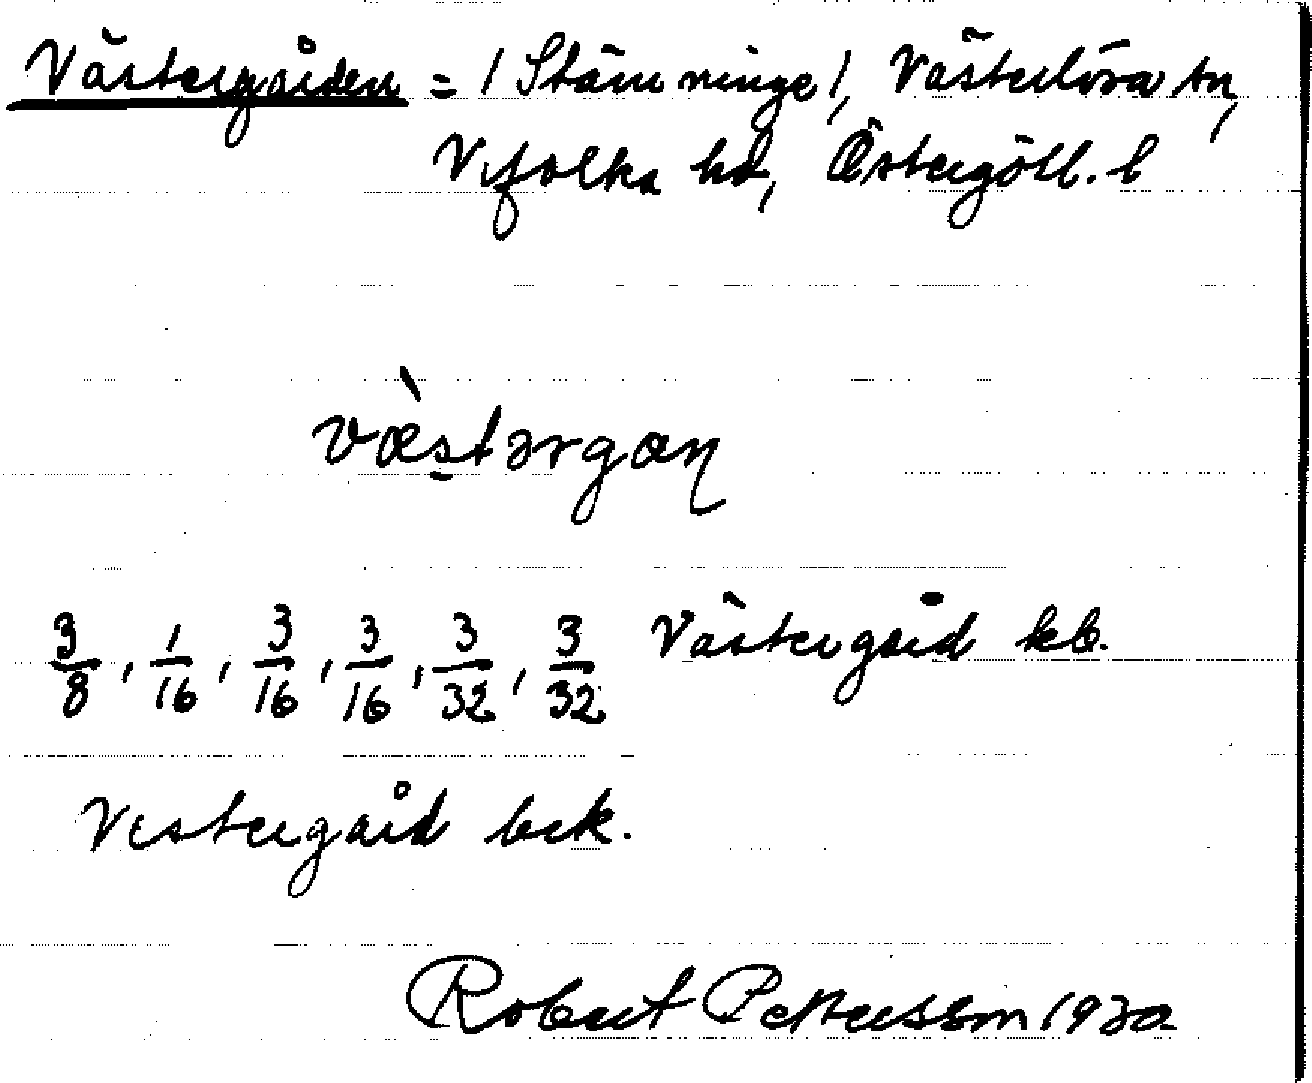 Västergården = / Stämminge /, Västerlösa sn,
Vifolka hd, Östergötl. l
væ̀stərgaɳ
3/8, 1/16, 3/16, 3/16, 3/32, 3/32 Västergård kb.
Vestergård bek.
Robert Pettersson 1920